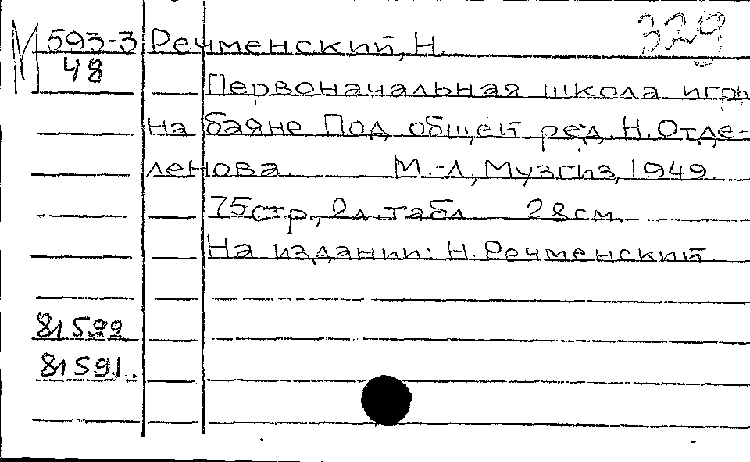 М 593-3 Речменский, Н. 329
48
Первоначальная школа игры
на баяне Под общей ред. Н. Отде-
ленова. М.-Л, Музгиз, 1949.
75стр., 2л. табл 28см.
На издании: Н. Речменский
81592
81591.